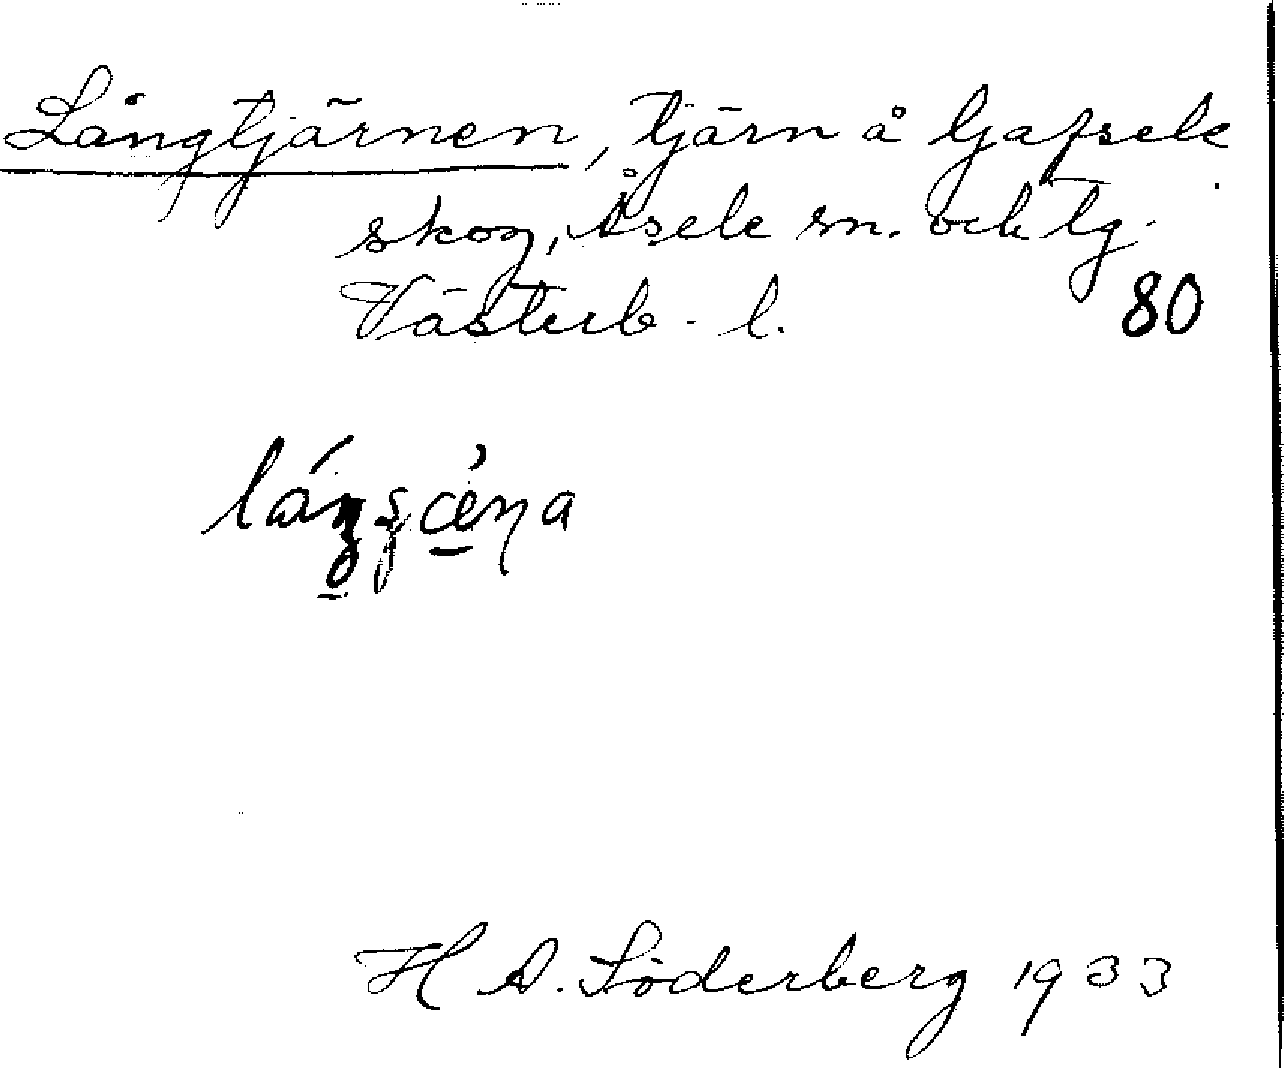 Långtjärnen, tjärn å Gafsele
skog, Åsele sn. och lg.
Västerb. l.
80
H A. Söderberg 1933